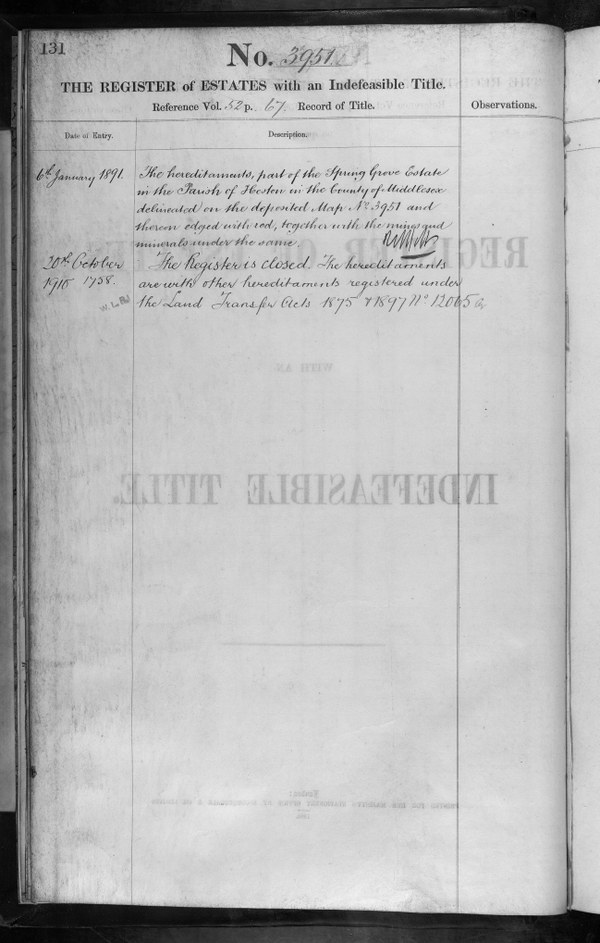 131
No. 3951
THE REGISTER of ESTATES with an Indefeasible Title.
Reference Vol. 52 p. 67. Record of Title.
Observations.
Date of Entry.
Description.
6th January 1891.
The hereditaments, part of the Spring Grove Estate
in the Parish of Heston in the County of Middlesex
delineated on the deposited Map No 3951 and
thereon edged with red, together with the mines and
minerals under the same.
20th October
1910 1758.
The Register is closed. The hereditaments
are with other hereditaments registered under
the Land Transfer Acts 1875 & 1897 No 12065
REGISTER
WITH AN
INDEFEASIBLE TITLE.